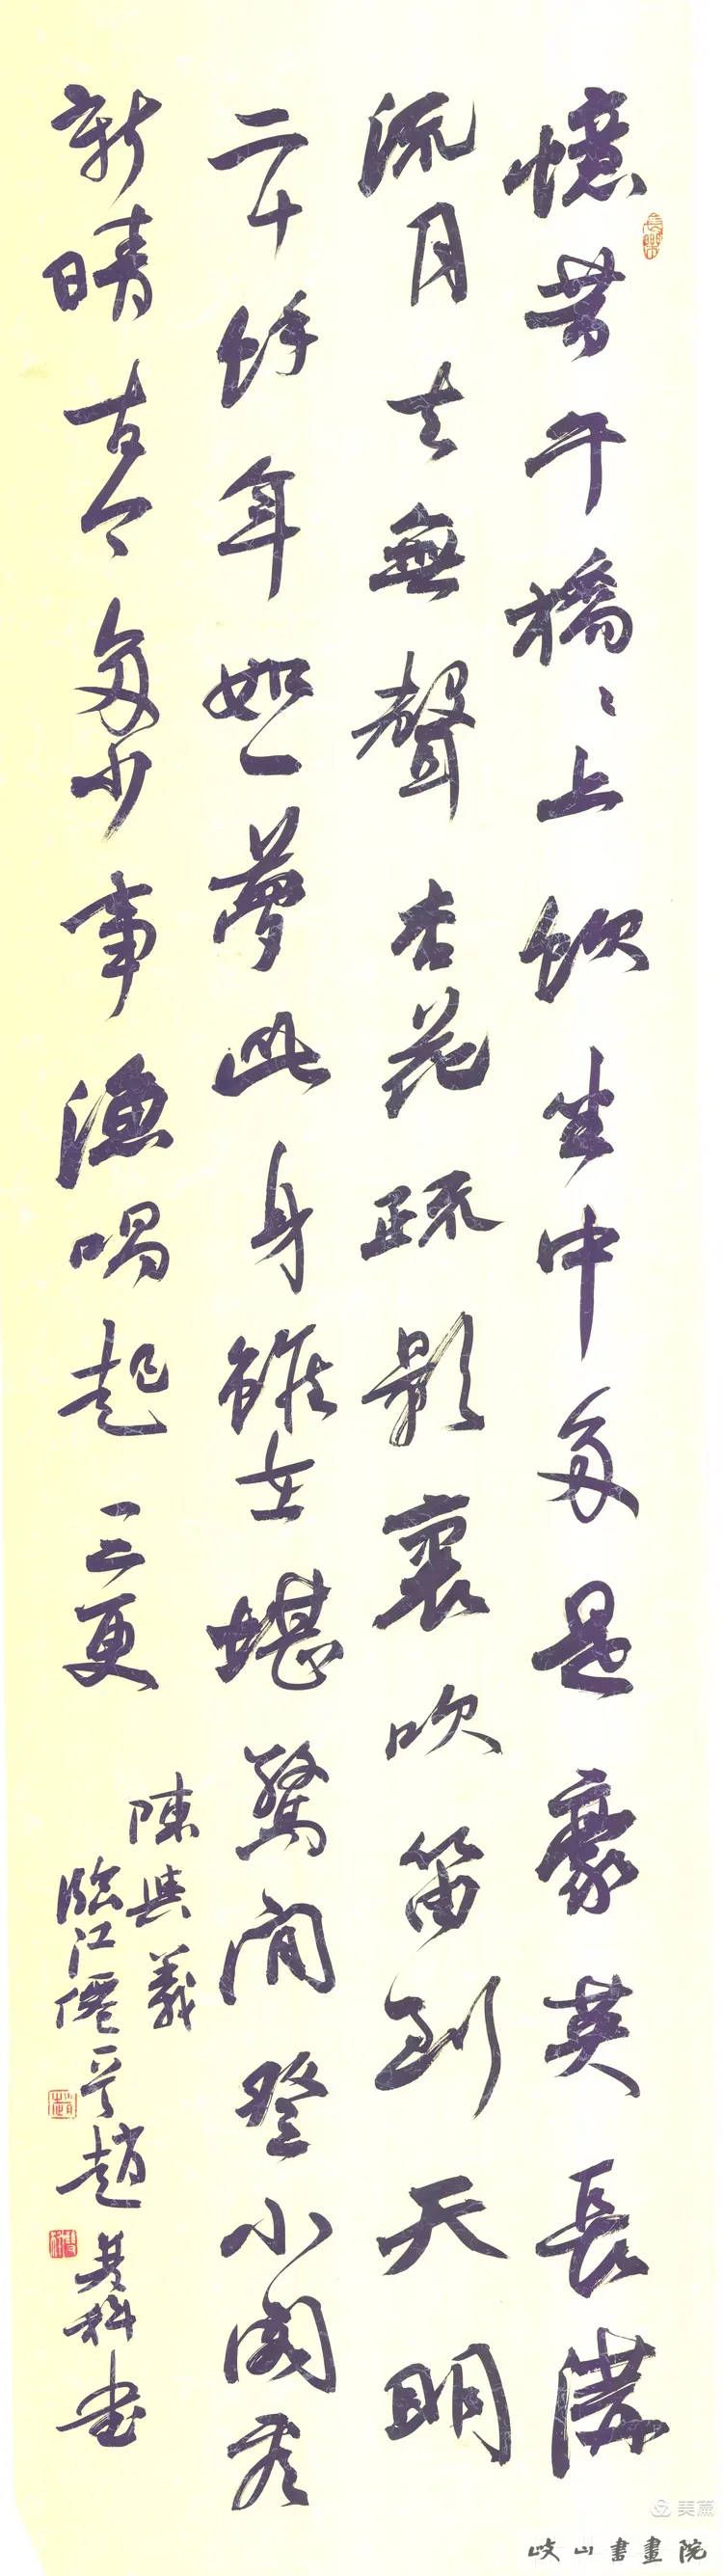 長樂
憶昔午橋〻上飲坐中多是豪英長溝
流月去無聲杏花疏影裏吹笛到天明
二十餘年如一夢此身雖在堪驚閒登小閣看
新晴古今多少事漁唱起三更
陳與義
臨江僊 趙 科书
美篇
岐山書畫院